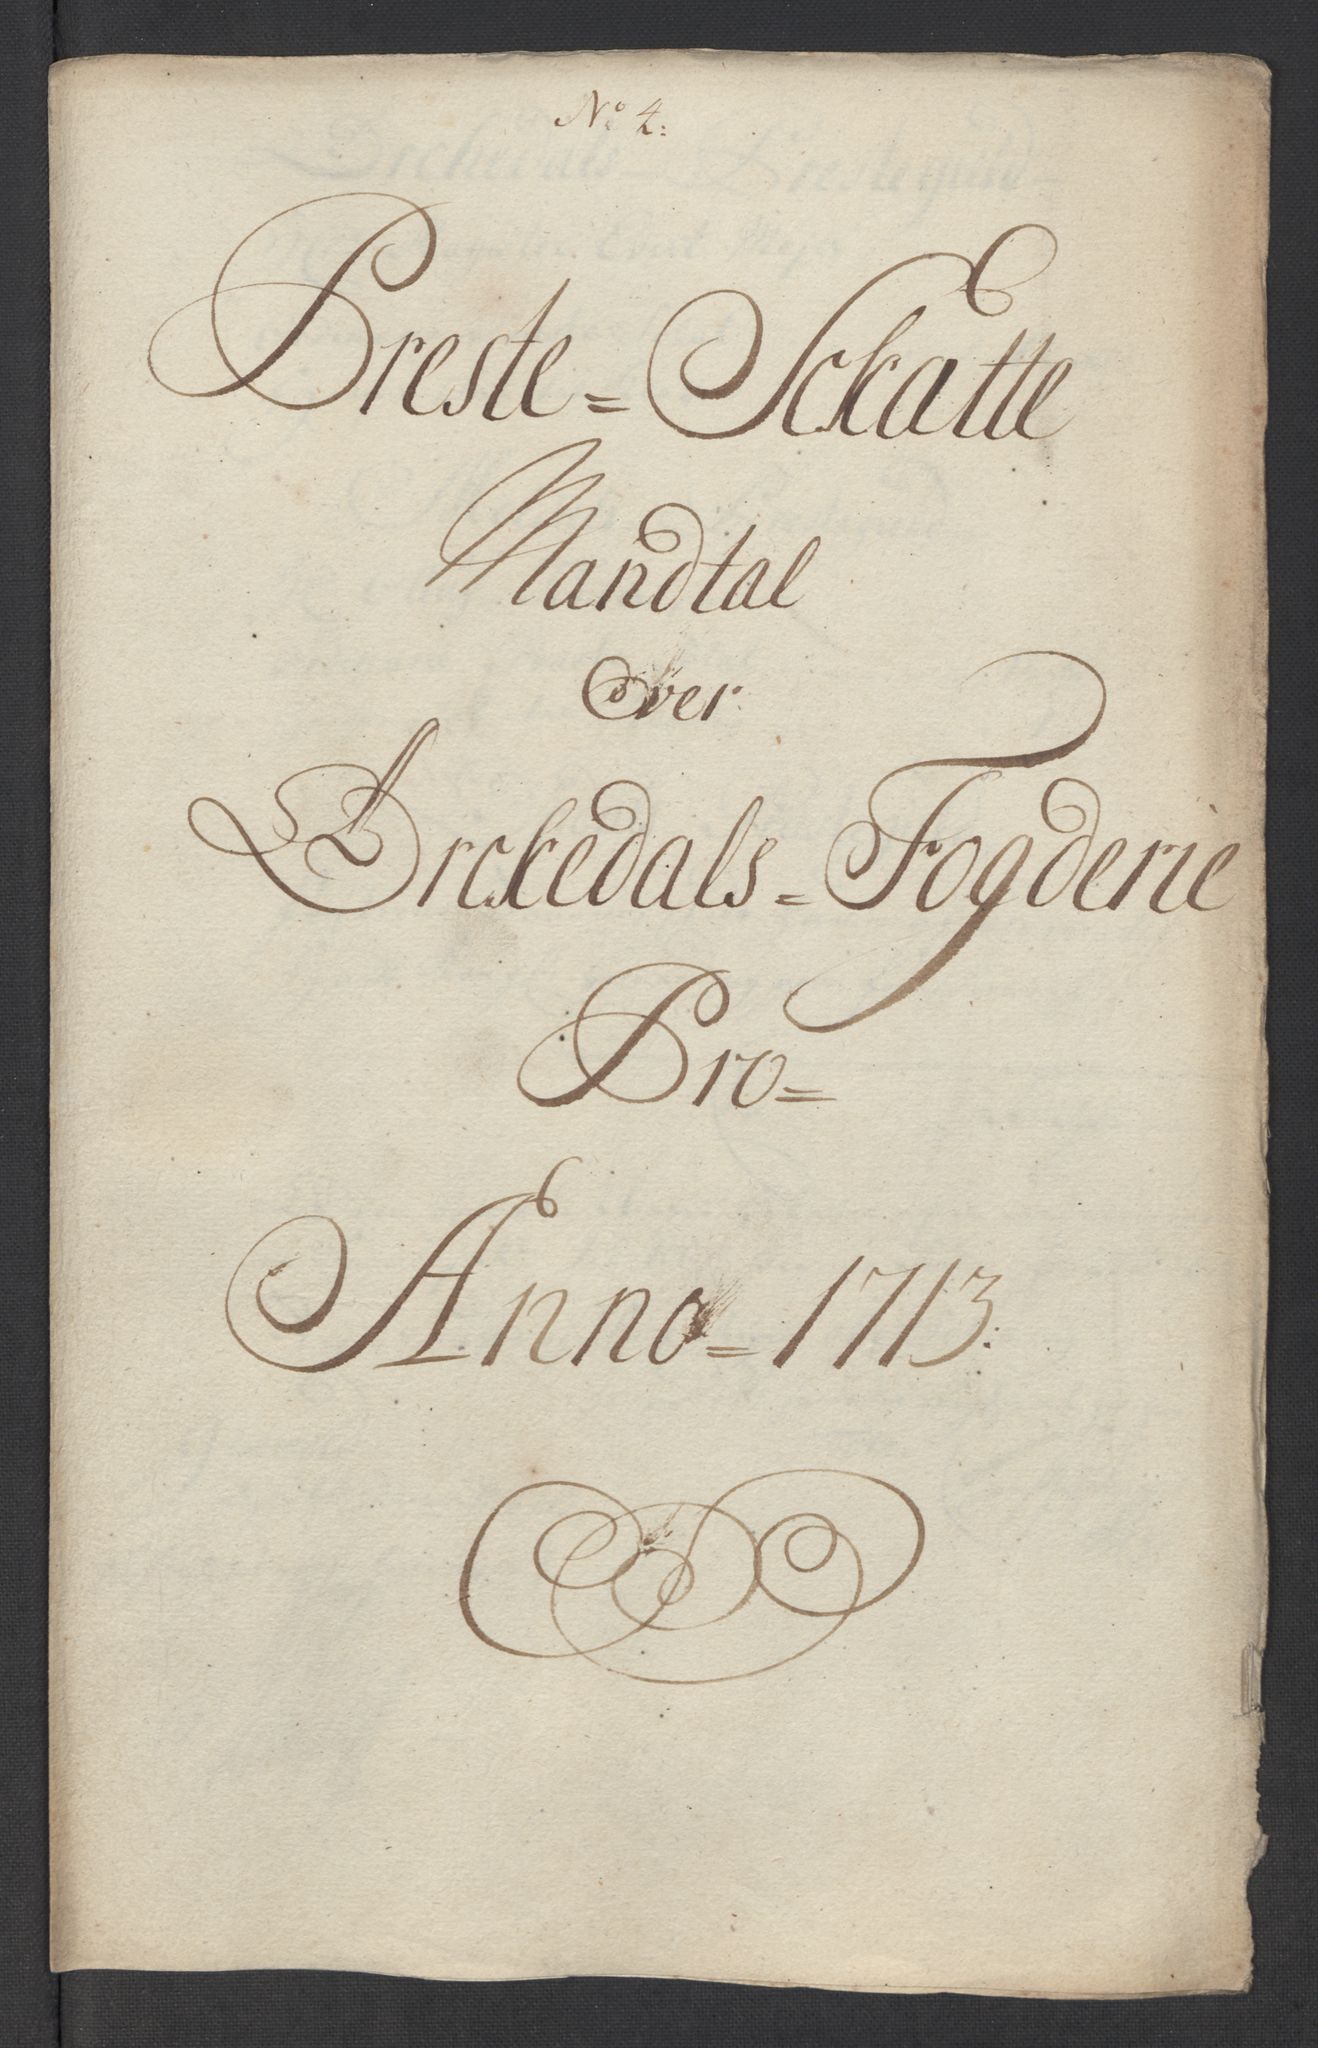 No 4:
Preste= Sckatte
Mandtal
Over
Orckedals= Fogderie
Pro=
Anno= 1713: